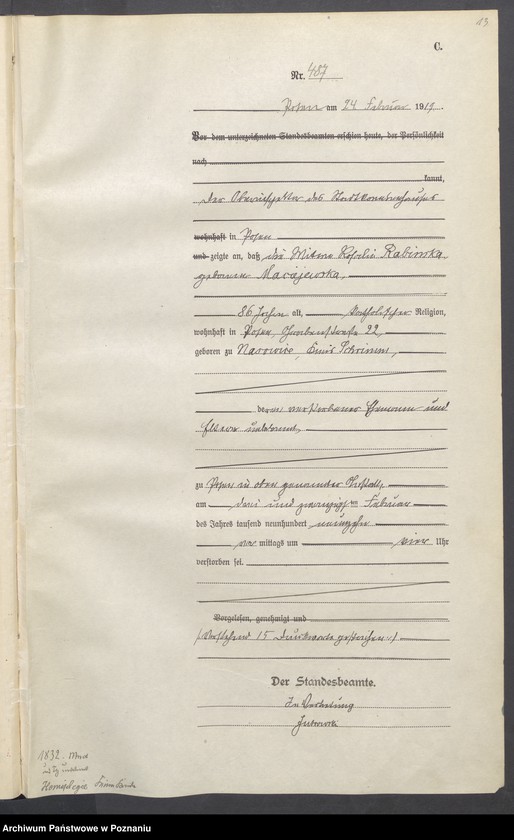 13
C.
Nr. 487
Posen am 24 Februar 1919.
Vor dem unterzeichneten Standesbeamten erschien heute, der Persönlichkeit
nach
kannt,
Der Oberinspektor des Stadtkrankenhauses
wohnhaft in Posen
und zeigte an, daß die Witwe Rosalie Rabinska
geborene Maciejewska,
86 Jahre alt, katholischer Religion,
wohnhaft in Posen, 22,
geboren zu Kreis Schrimm,
deren verstorbener Ehemann und
Eltern unbekannt,
zu Posen in oben genannter Anstalt,
am drei und zwanzigsten Februar
des Jahres tausend neunhundert neunzehn
vor mittags um vier Uhr
verstorben sei.
Vorgelesen, genehmigt und
(Vorstehend 15 Druckworte gestrichen.)
Der Standesbeamte.
In Vertretung
1832.
Archiwum Państwowe w Poznaniu